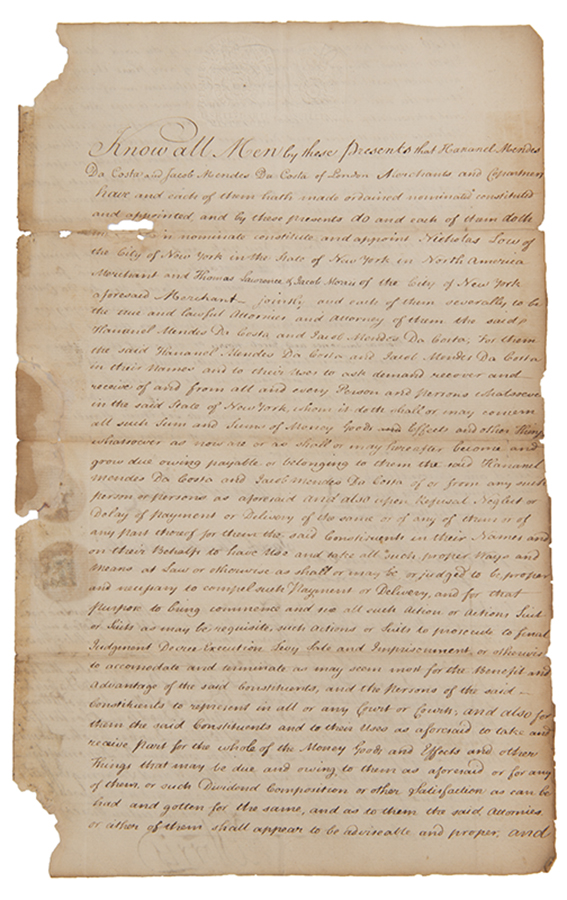 Know all Men by these Presents that Hananel Mendes
Da Costa and Jacob Mendes Da Costa of London Merchants and Copartners
have and each of them hath made ordained nominated constituted
and appointed and by these presents do and each of them doth
nominate constitute and appoint Nicholas Low of
the City of New York in the State of New York in North America
Merchant and Thomas Lawrence & Jacob of the City of New York
aforesaid Merchant jointly and each of them severally to be
the true and lawful Attornies and Attorney of them the said
Hananel Mendes Da Costa and Jacob Mendes Da Costa, for them
the said Hananel Mendes Da Costa and Jacob Mendes Da Costa
in their Names and to their Uses to ask demand recover and
receive of and from all and every Person and Persons whatsoever
in the said State of New York, whom it doth shall or may concern
all such Sum and Sums of Money Goods and Effects and other Things
whatsoever as now are or as shall or may hereafter become and
grow due owing payable or belonging to them the said Hananel
Mendes Da Costa and Jacob Mendes Da Costa of or from any such
person or persons as aforesaid And also upon Refusal Neglect or
Delay of Payment or Delivery of the same or of any of them or of
any part thereof for them the said Constituents in their Names and
on their Behalfs to have Use and take all such proper Ways and
Means at Law or otherwise as shall or may be or judged to be proper
and necessary to compel such Payment or Delivery, and for that
purpose to bring commence and all such Action or Actions Suit
or Suits as may be requisite, such Actions or Suits to prosecute to final
Judgment Decree Execution Levy Sale and Imprisonment, or otherwise
to accomodate and terminate as may seem most for the Benefit and
Advantage of the said Constituents, and the Persons of the said
Constituents to represent in all or any Court or Courts, and also for
them the said Constituents and to their Uses as aforesaid to take and
receive Part for the whole of the Money Goods and Effects and other
Things that may be due and owing to them as aforesaid or for any
of them, or such Dividend Composition or other Satisfaction as can be
had and gotten for the same, and as to them the said Attornies
or either of them shall appear to be adviseable and proper, and